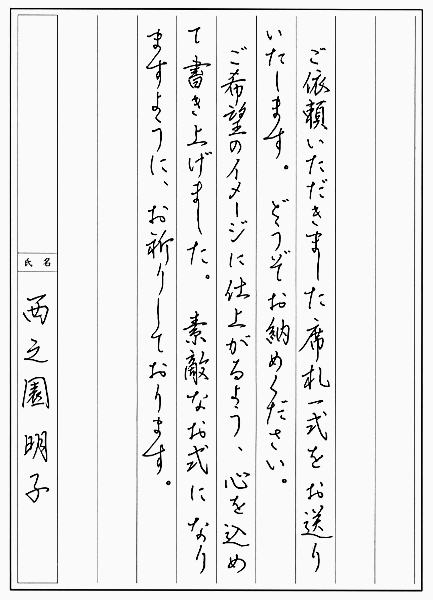 ご依頼いただきました席札一式をお送り
いたします。　どうぞお納めください。
ご希望のイメージに仕上がるよう、心を込め
て書き上げました。　素敵なお式になり
ますように、お祈りしております。
氏名
西之園明子